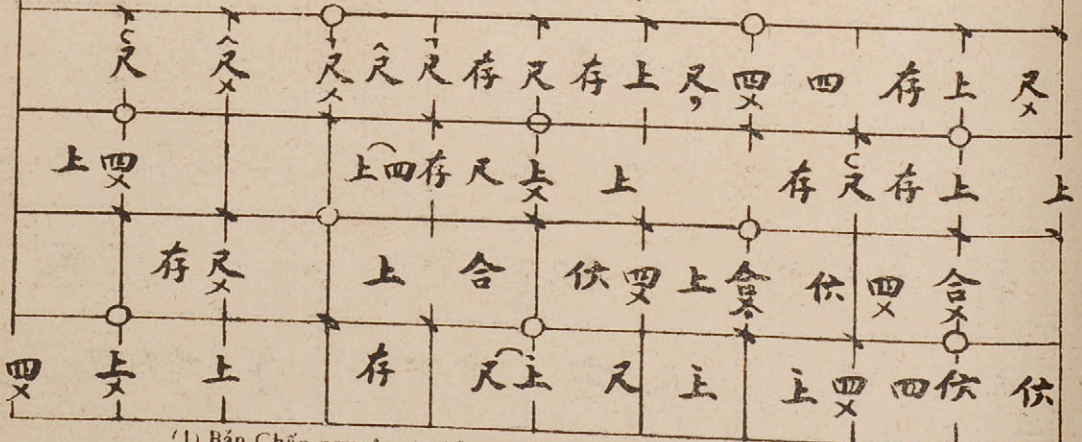 尺 尺 尺 尺 尺 存 尺 存 上 尺 四 四 存 上 尺
上 四 上 四 存 尺 上 上 存 尺 存 上 上
存 尺 上 合 伏 四 上 合 伏 四 合
四 上 上 存 尺 上 尺 上 上 四 四 伏 伏
(1) Bản